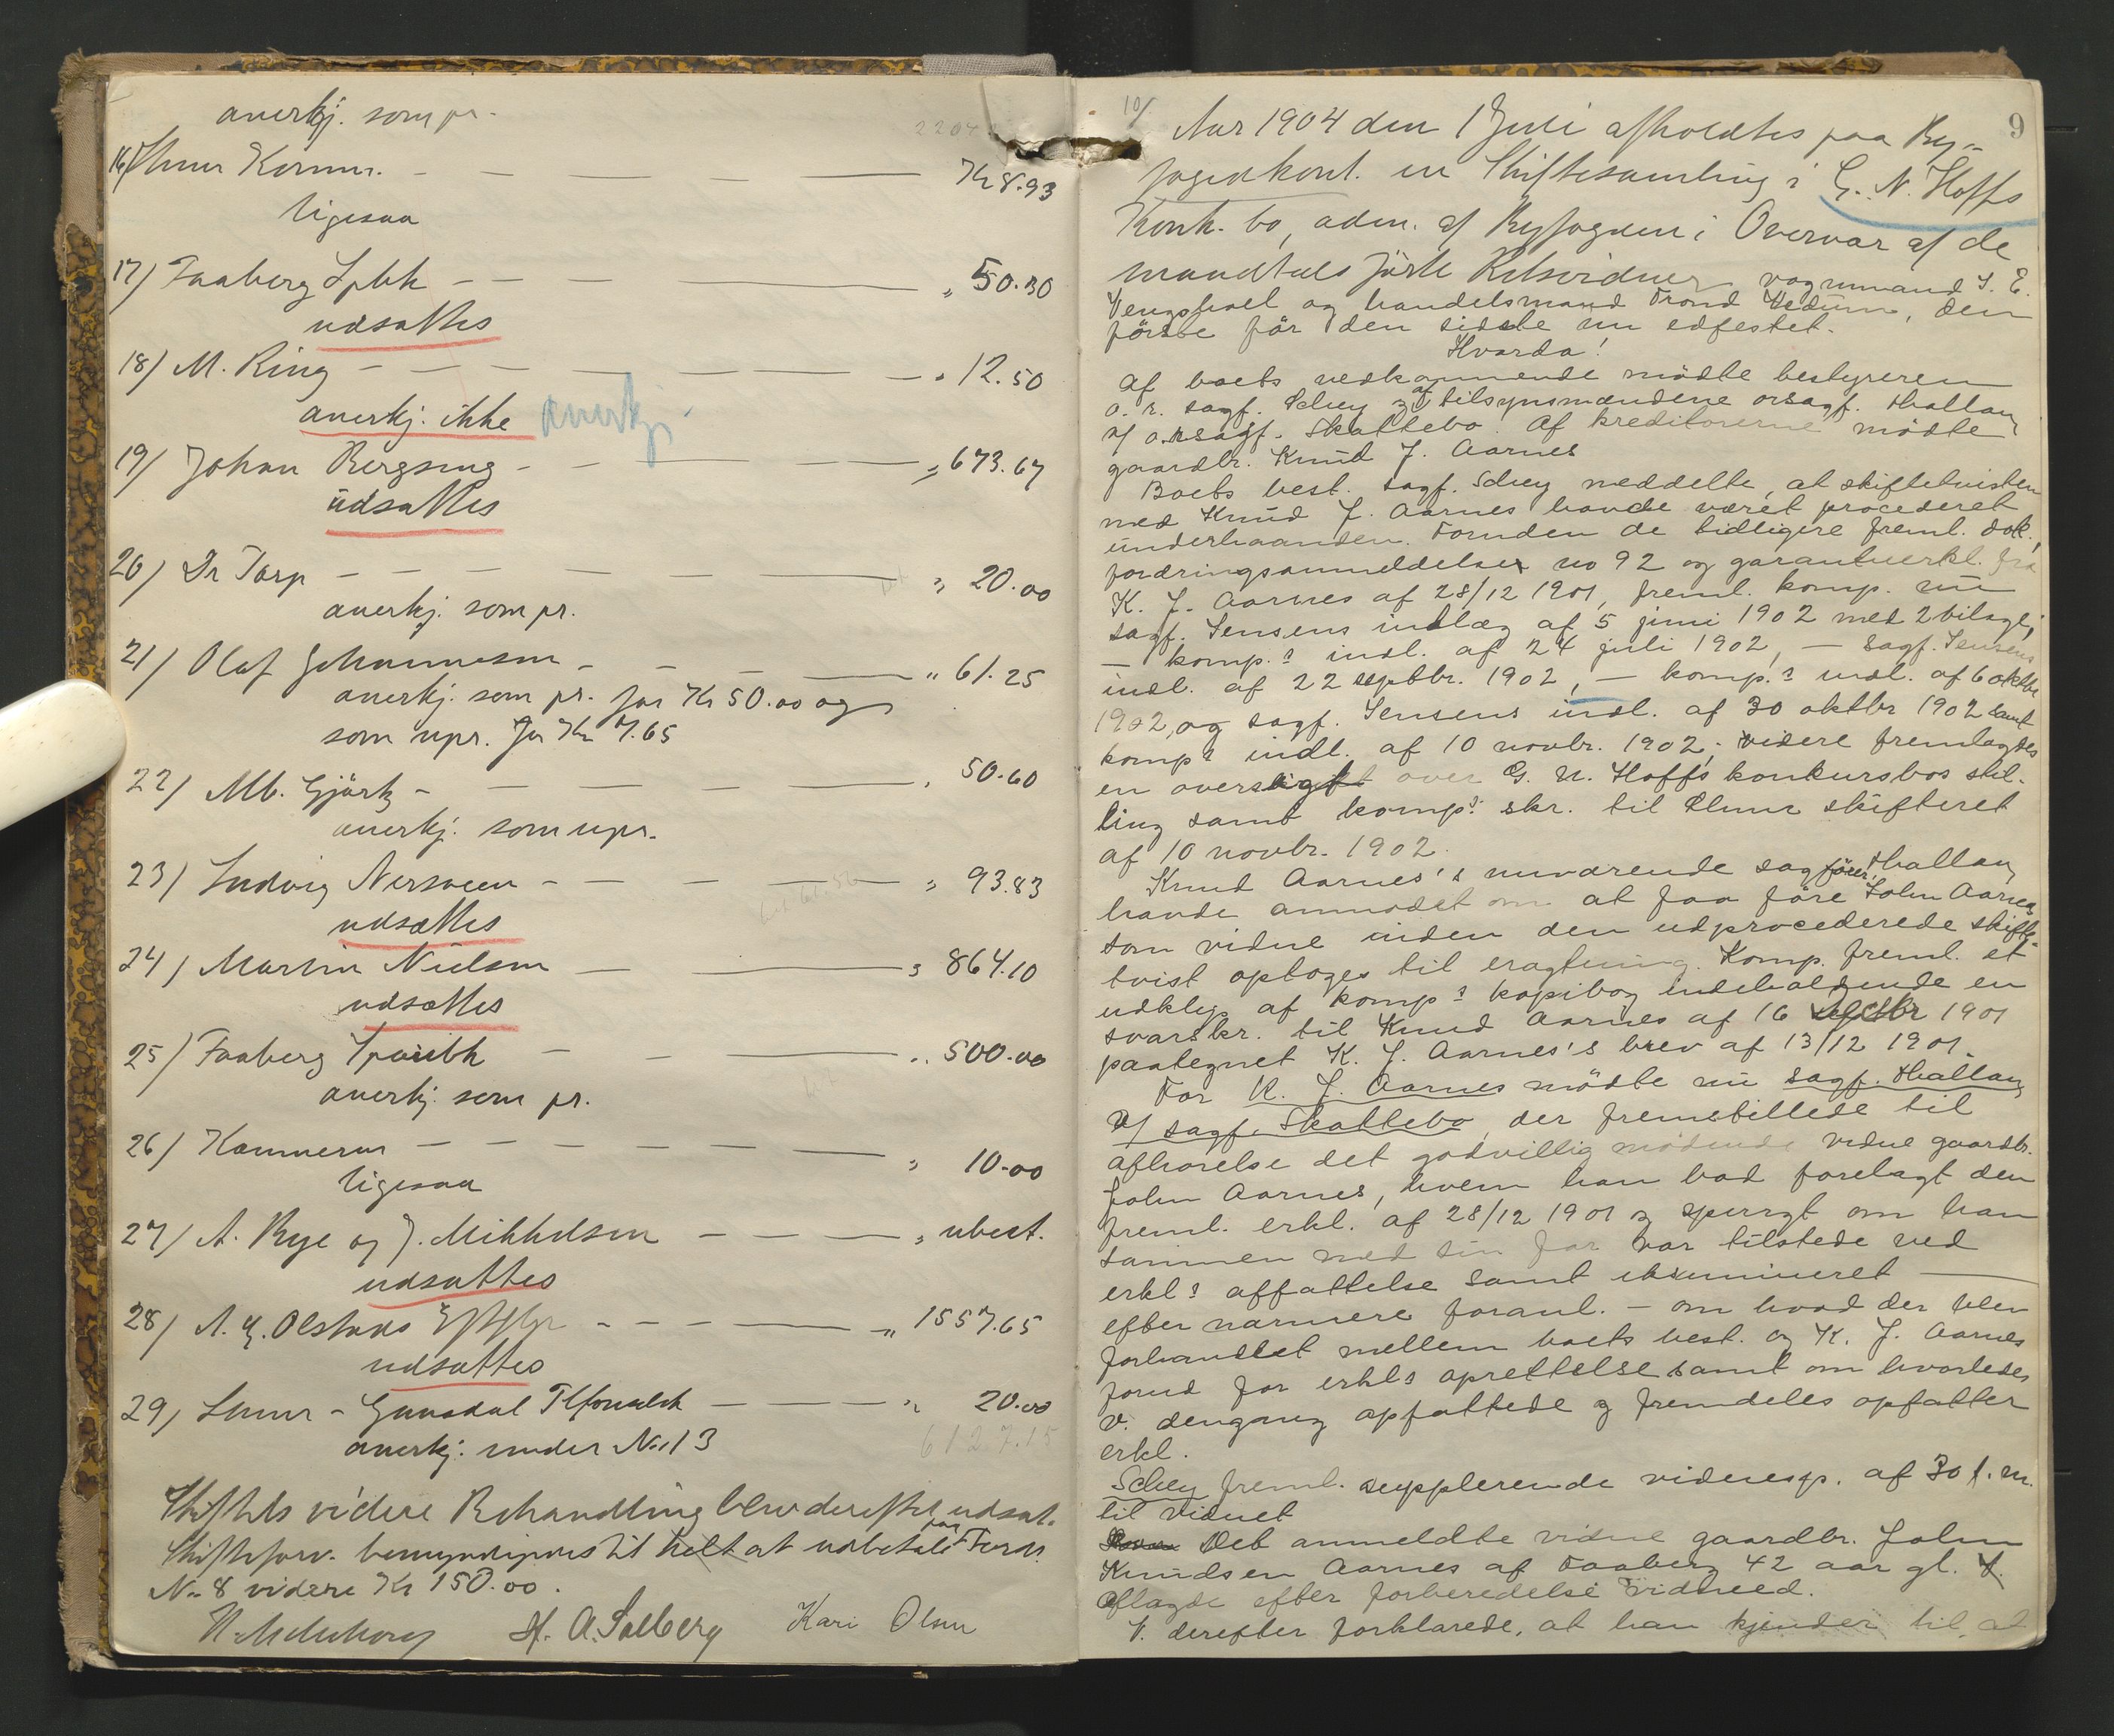 anerkj. som pr.
16/ Elmer Kornm. - - - Kr 8.93
ligesaa
17/ Faaberg Spbk - - - „ 50.30
udsattes
18/ M. Ring - - - „ 12.50
anerkj. ikke anerkj.
19/ Johan Bergseng - - - „ 673.67
udsattes
20/ Dr Torp - - - „ 20.00
anerkj. som pr.
21/ Olaf Johannesen - - - „ 61.25
anerkj. som pr. for Kr 50.00 og
som upr. for Kr 7.65
22/ Mb. Gjörtz - - - „ 50.60
anerkj. som upr.
23/ Ludvig Nersveen - - - „ 93.83
udsættes
24/ Martin Nielsen - - - „ 864.10
udsættes
25/ Faaberg - - - „ 500.00
anerkj. som pr.
26/ Kæmneren - - - „ 10.00
ligesaa
27/ A. Bye og J. Mikkelsen - - - „ ubest.
udsattes
28/ A. G. Olstads Eftflgr - - - „ 1557.65
udsattes
29/ - Gausdal - - - „ 20.00
anerkj. under No. 13
6127.15
Skiftets videre Behandling blev derefter udsat.
Skifteforv. bemyndiges til helt at udbetale paa Fordr.
No. 8 videre Kr 150.00.
H. A. Solberg Kari Olsen
10/ 9
Aar 1904 den 1 Juli afholdtes paa By-
fogedkont. en Skiftesamling i G. N. Hoffs
Konk. bo, adm. af Byfogden i Overvær af de
mandtalsførte Retsvidner vognmand I. E.
og handelsmand Trond Hedum, den
förste för den sidste nu edfestet.
Hvorda!
Af boets vedkommende mödte bestyreren
o. r. sagf. Schey og af tilsynsmændene orsagf. Thallaug
v/ o.rsagf. Skattebo. Af kreditorerne mödte
gaardbr. Knud J. Aarnes
Boets best. sagf. Schey meddelte, at skiftetvisten
med Knud J. Aarnes havde været procederet
underhaanden. Foruden de tidligere freml. dok.,
fordringsanmeldelser no 92 og garantierkl. fra
K. J. Aarnes af 28/12 1901, freml. komp. nu
sagf. Jensens indlæg af 5 juni 1902 med 2 bilage,
– komp.s indl. af 24 juli 1902, – sagf. Jensens
indl. af 22 septbr. 1902, – komp.s indl. af 6 oktbr
1902, og sagf. Jensens indl. af 30 oktbr 1902 samt
komps indl. af 10 novbr. 1902; videre fremlagdes
en oversigt over G. N. Hoffs konkursbos stil-
ling samt komps. skr. til skifteret
af 10 novbr. 1902.
Knud Aarnes's nuværende sagförer Thallaug
havde anmodet om at faa före John Aarnes
som vidne inden den udprocederede skifte-
tvist optoges til eragtning. Komp. freml. et
udklip af komps kopibog indeholdende en
svarskr. til Knud Aarnes af 16 decbr 1901
paategnet K. J. Aarnes's brev af 13/12 1901.
For K. J. Aarnes mödte nu sagf. Thallaug
v/ sagf. Skattebo, der fremstillede til
afhörelse det godvillig mödende vidne gaardbr.
John Aarnes, hvem han bad forelagt den
freml. erkl. af 28/12 1901 og spurgt om han
sammen med sin far var tilstede ved
erkls affattelse samt eksamineret –
efter nærmere foranl. – om hvad der blev
forhandlet mellem boets best. og K. J. Aarnes
forud for erkls oprettelse samt om hvorledes
v. dengang opfattede og fremdeles opfatter
erkl.
Schey freml. supplerende videresp. af 30 f. m.
til vidnet
Det anmeldte vidne gaardbr. John
Knudsen Aarnes af Faaberg 42 aar gl.
aflagde efter forberedelse vidneed.
V. derefter forklarede, at han kjender til, at